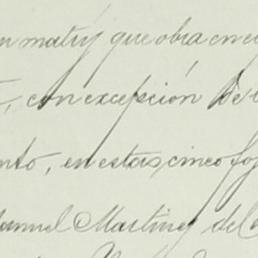 matriz que obra en
, con excepción de
nto, en estas cinco foj
Manuel Martinez del